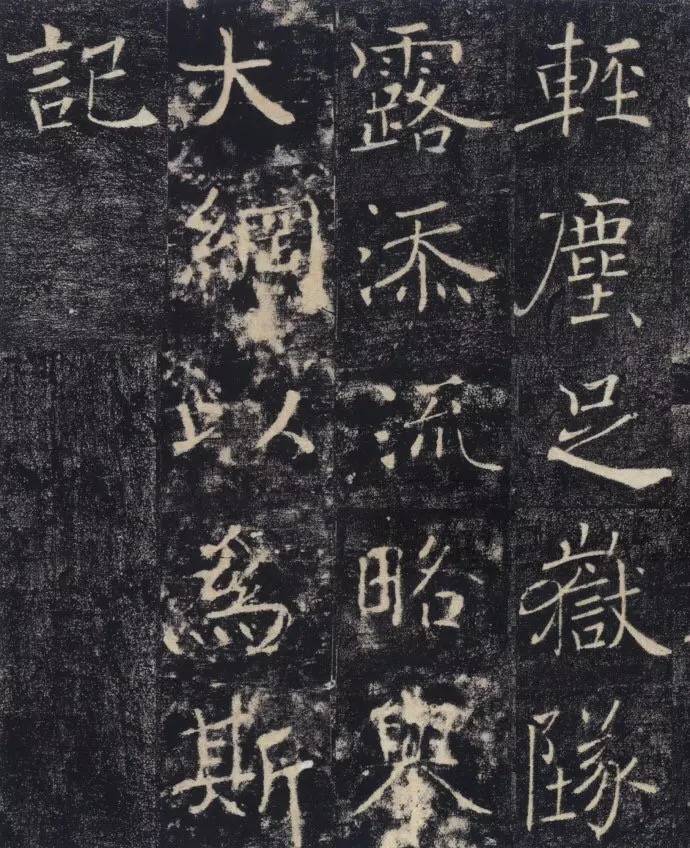 輕塵足嶽墜
露添流略舉
大綱以為斯
記